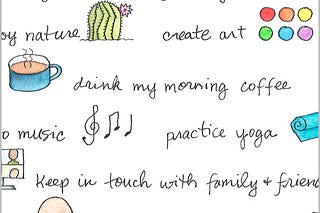 oy nature create art
drink my morning coffee
o music practice yoga
Keep in touch with family & friend